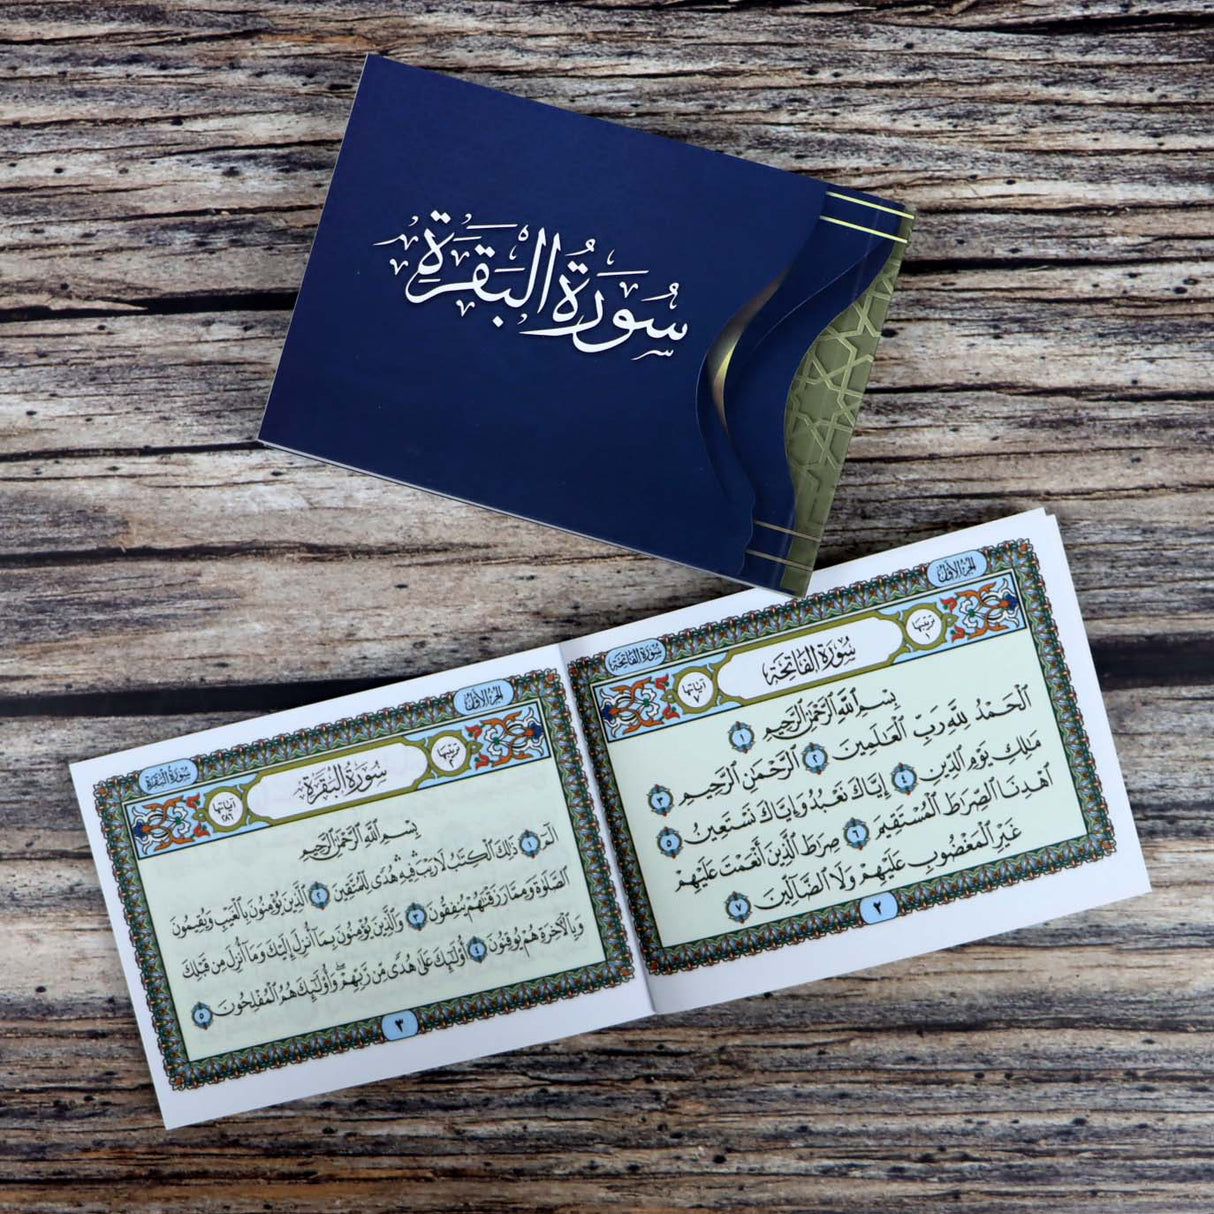 سُورَةُ الْبَقَرَةِ
الجزء الأول
سورة الفاتحة
ترتيبها ١
سُورَةُ الْفَاتِحَةِ
آياتها ٧
بِسْمِ اللَّهِ الرَّحْمَٰنِ الرَّحِيمِ ١
الْحَمْدُ لِلَّهِ رَبِّ الْعَالَمِينَ ٢ الرَّحْمَٰنِ الرَّحِيمِ ٣
مَالِكِ يَوْمِ الدِّينِ ٤ إِيَّاكَ نَعْبُدُ وَإِيَّاكَ نَسْتَعِينُ ٥
اهْدِنَا الصِّرَاطَ الْمُسْتَقِيمَ ٦ صِرَاطَ الَّذِينَ أَنْعَمْتَ عَلَيْهِمْ
غَيْرِ الْمَغْضُوبِ عَلَيْهِمْ وَلَا الضَّالِّينَ ٧
٢
الجزء الأول
سورة البقرة
ترتيبها ٢
سُورَةُ الْبَقَرَةِ
آياتها ٢٨٦
بِسْمِ اللَّهِ الرَّحْمَٰنِ الرَّحِيمِ
الم ١ ذَٰلِكَ الْكِتَابُ لَا رَيْبَ ۛ فِيهِ ۛ هُدًى لِّلْمُتَّقِينَ ٢ الَّذِينَ يُؤْمِنُونَ بِالْغَيْبِ وَيُقِيمُونَ
الصَّلَاةَ وَمِمَّا رَزَقْنَاهُمْ يُنفِقُونَ ٣ وَالَّذِينَ يُؤْمِنُونَ بِمَا أُنزِلَ إِلَيْكَ وَمَا أُنزِلَ مِن قَبْلِكَ
وَبِالْآخِرَةِ هُمْ يُوقِنُونَ ٤ أُولَٰئِكَ عَلَىٰ هُدًى مِّن رَّبِّهِمْ ۖ وَأُولَٰئِكَ هُمُ الْمُفْلِحُونَ ٥
٣